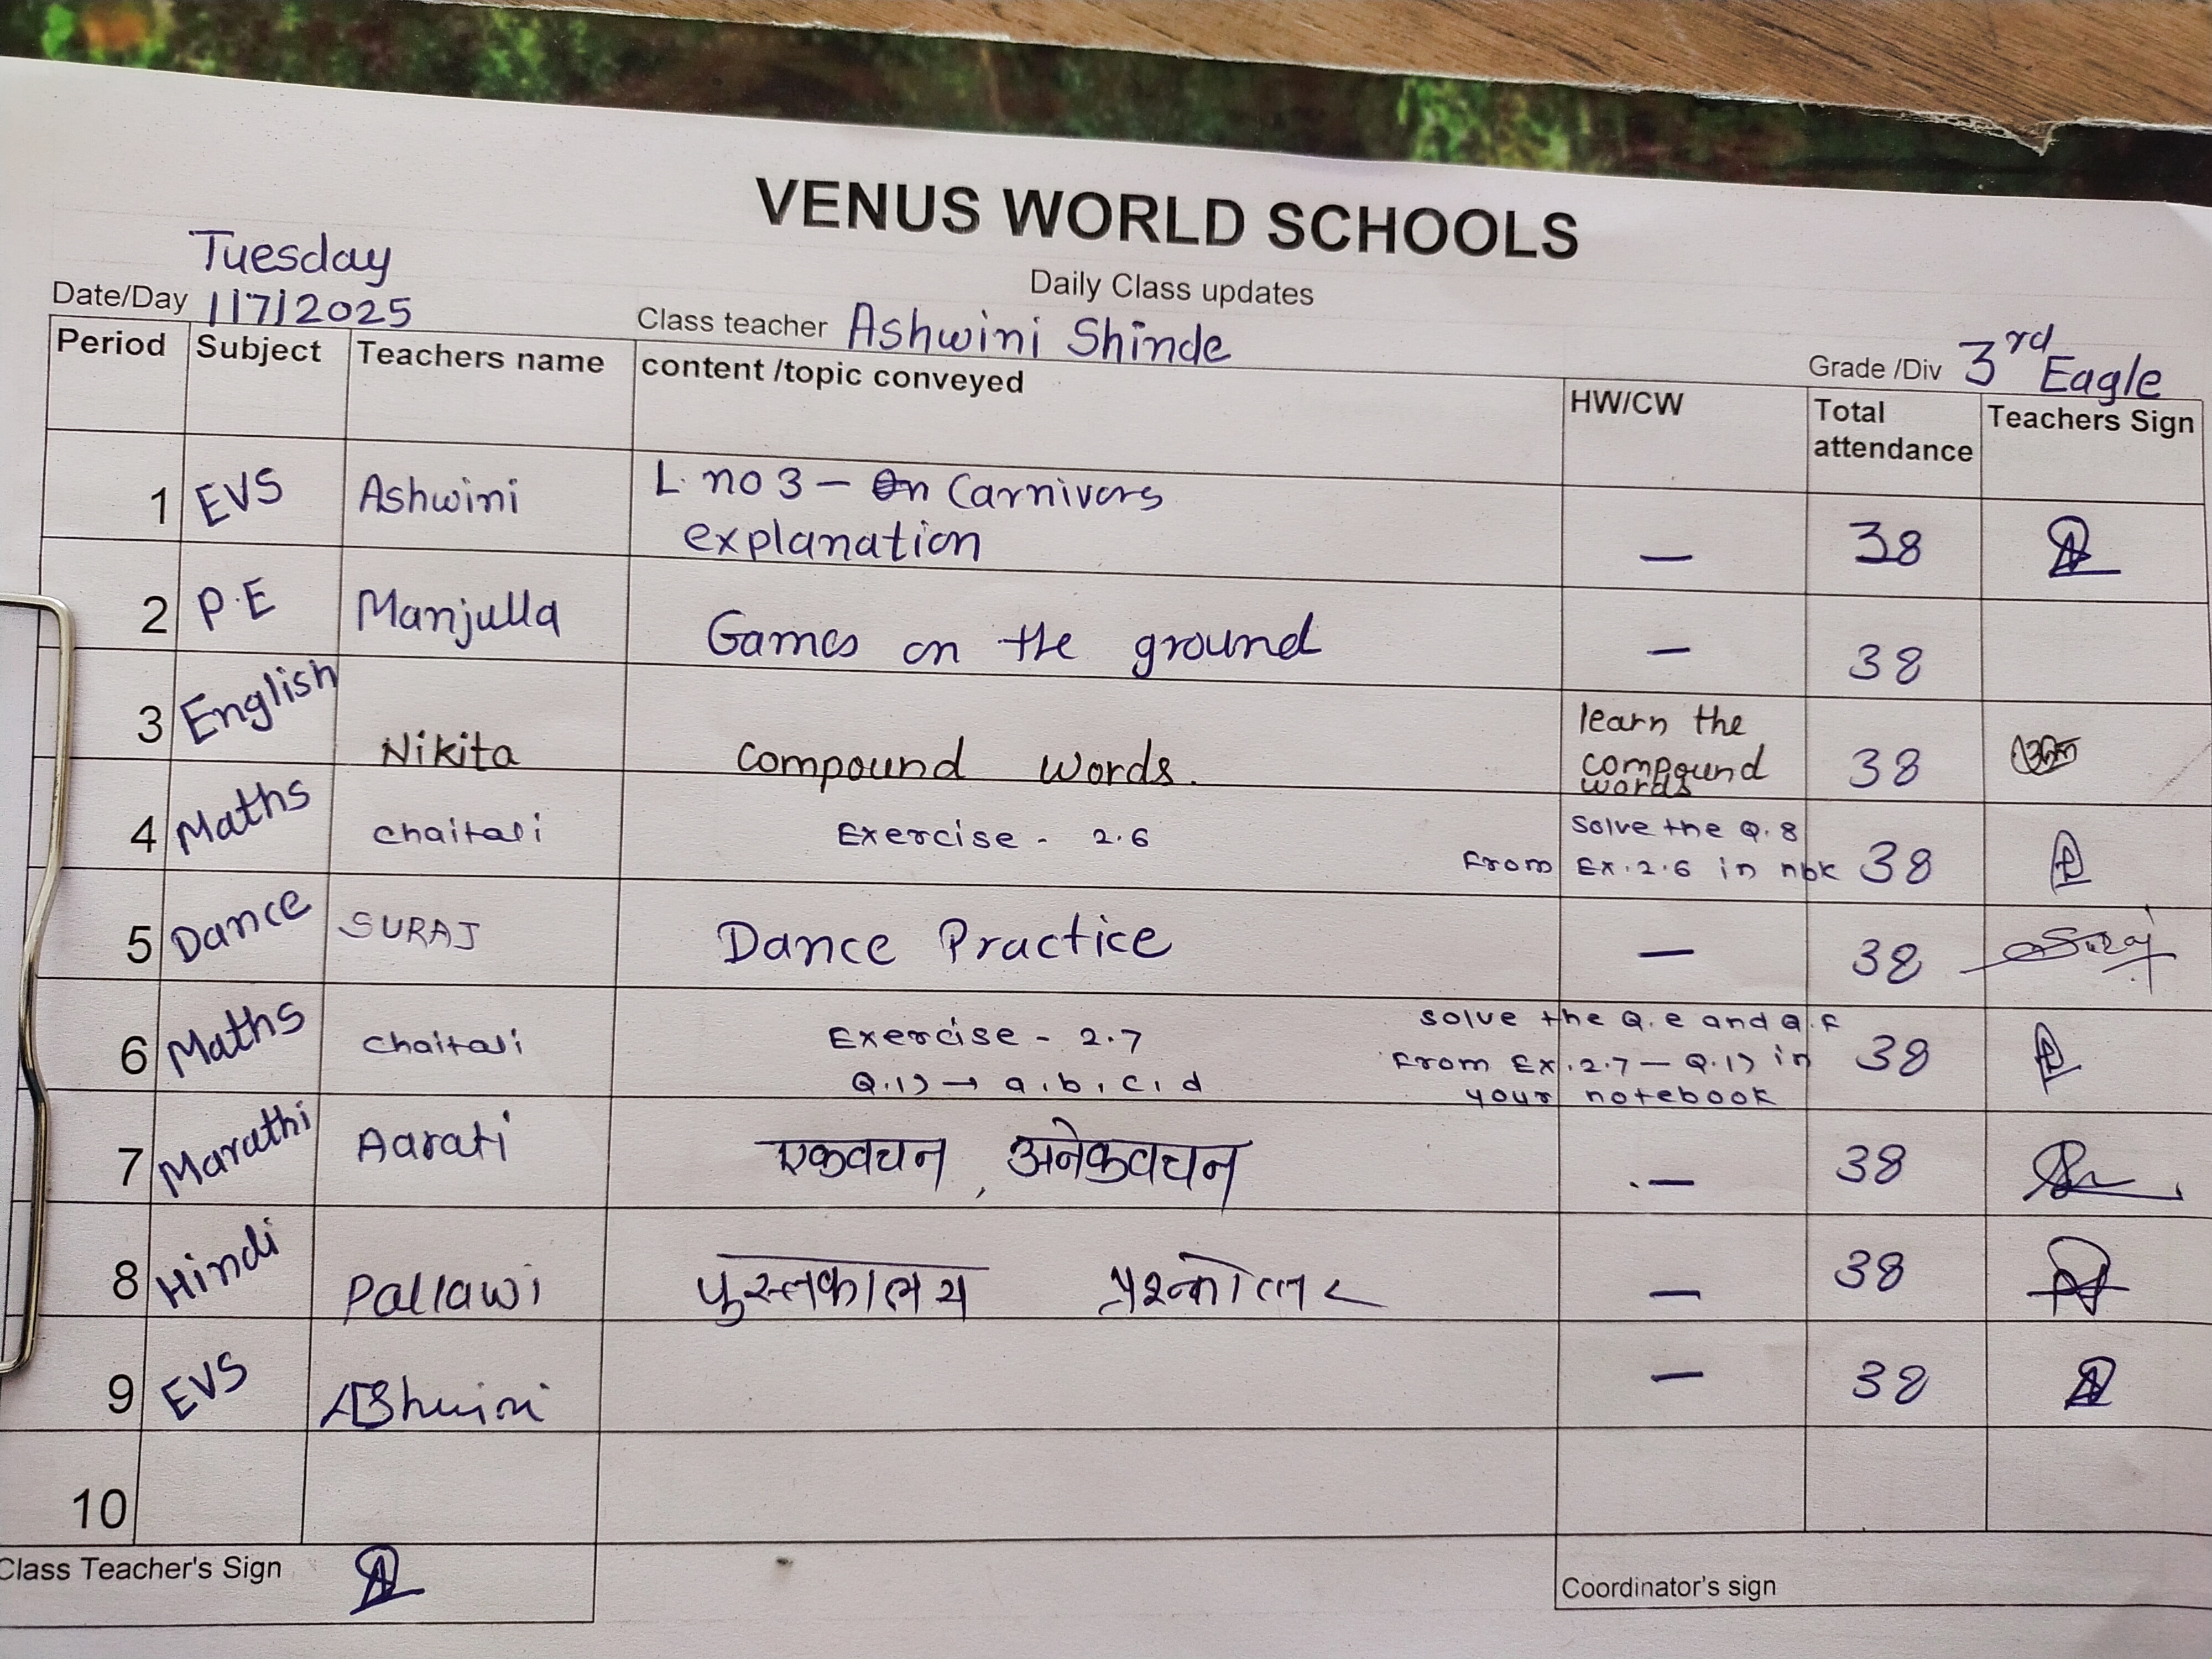 VENUS WORLD SCHOOLS
Daily Class updates
Tuesday
Date/Day 1/7/2025
Class teacher Ashwini Shinde
Grade /Div 3rd Eagle
Period Subject Teachers name content /topic conveyed HW/CW Total attendance Teachers Sign
1 EVS Ashwini L. no 3 – Carnivors — 38
explanation
2 P.E Manjulla Games on the ground — 38
3 English Nikita Compound words. learn the 38
compound
words
4 Maths Chaitali Exercise - 2.6 Solve the Q.8 38
From Ex.2.6 in nbk
5 Dance SURAJ Dance Practice — 38 Suraj
6 Maths Chaitali Exercise - 2.7 solve the Q.e and Q.f 38
Q.1) → a, b, c, d From Ex.2.7 – Q.1) in
your notebook
7 Marathi Aarati एकवचन, अनेकवचन — 38
8 Hindi Pallawi पुस्तकालय प्रश्नोत्तर — 38
9 EVS Ashwini — 38
10
Class Teacher's Sign
Coordinator's sign